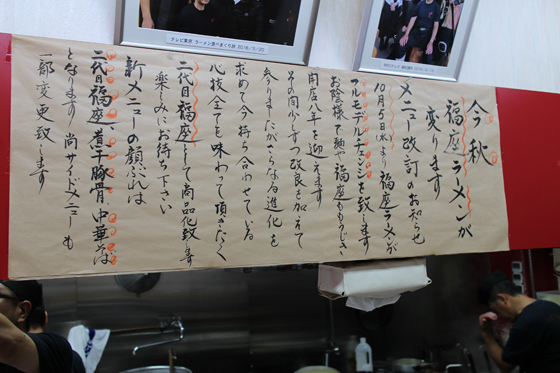 テレビ東京 ラーメン食べまくり旅 2016/5/20
今秋
福座ラーメンが
変ります
メニュー改訂のお知らせ
10月5日木より福座ラーメンが
フルモデルチェンジを致します
お陰様で麺や福座ももうすぐ
開店八年を迎えます
その間少しずつ改良を加えて
参りましたがさらなる進化を
求めて今持ち合わせている
心技全てを味わって頂きたく
二代目福座として商品化致します
楽しみにお待ち下さい
新メニューの顔ぶれは
二代目福座、煮干豚骨、中華そば
となります 尚サイドメニューも
一部変更致します